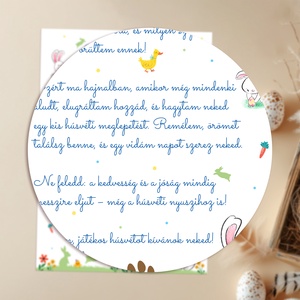 és milyen
örültem ennek!
zért ma hajnalban, amikor még mindenki
aludt, elugráltam hozzád, és hagytam neked
egy kis húsvéti meglepetést. Remélem, örömet
találsz benne, és egy vidám napot szerez neked.
Ne feledd: a kedvesség és a jóság mindig
messzire eljut – még a húsvéti nyuszihoz is!
játékos húsvétot kívánok neked!